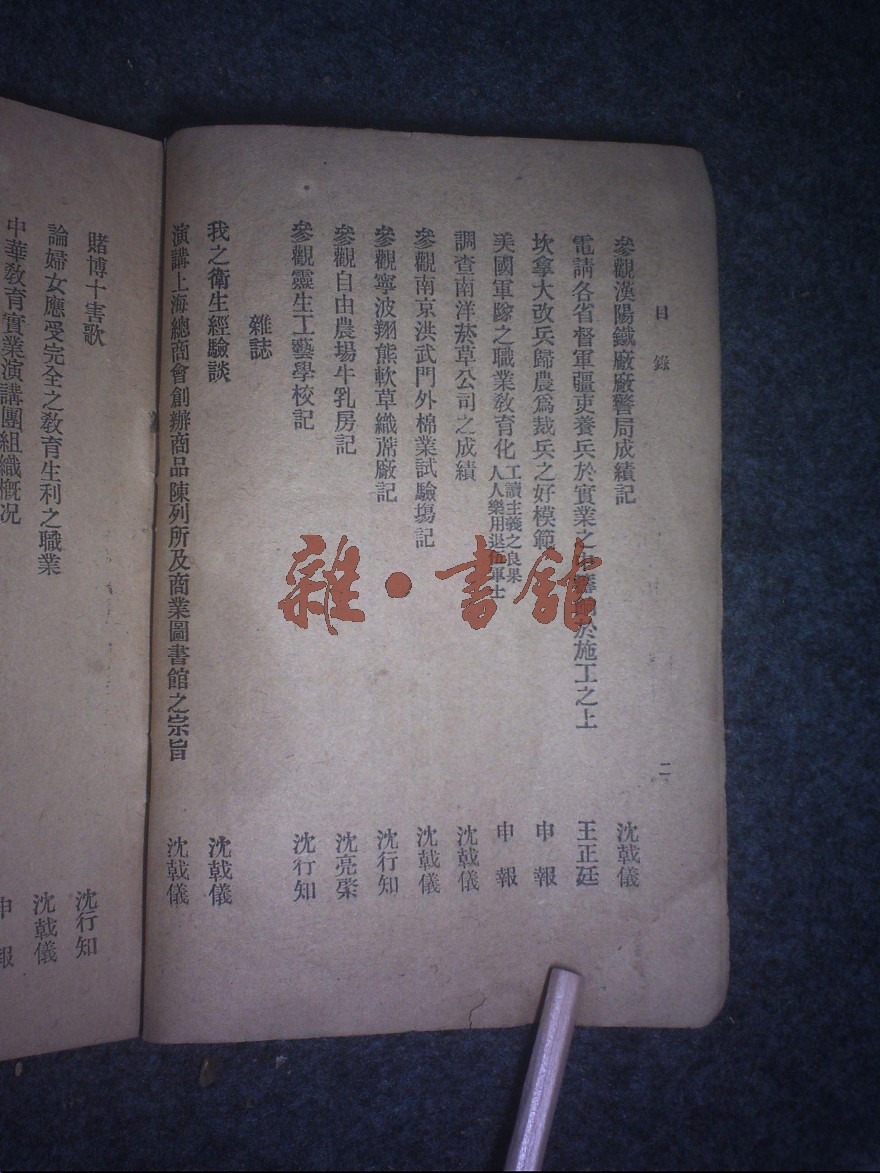 目錄
二
參觀漢陽鐵廠廠警局成績記 沈戟儀
電請各省督軍疆吏養兵於實業之中 於施工之上 王正廷
坎拿大改兵歸農爲裁兵之好模範 申報
美國軍隊之職業教育化 工讀主義之良果 人人樂用退伍軍士 申報
調查南洋菸草公司之成績 沈戟儀
參觀南京洪武門外棉業試驗場記 沈戟儀
參觀寧波翔熊軟草織蓆廠記 沈行知
參觀自由農場牛乳房記 沈亮棨
參觀靈生工藝學校記 沈行知
雜誌
我之衛生經驗談 沈戟儀
演講上海總商會創辦商品陳列所及商業圖書館之宗旨 沈戟儀
賭博十害歌 沈行知
論婦女應受完全之教育生利之職業 沈戟儀
中華教育實業演講團組織概況 申報
雜·書舘